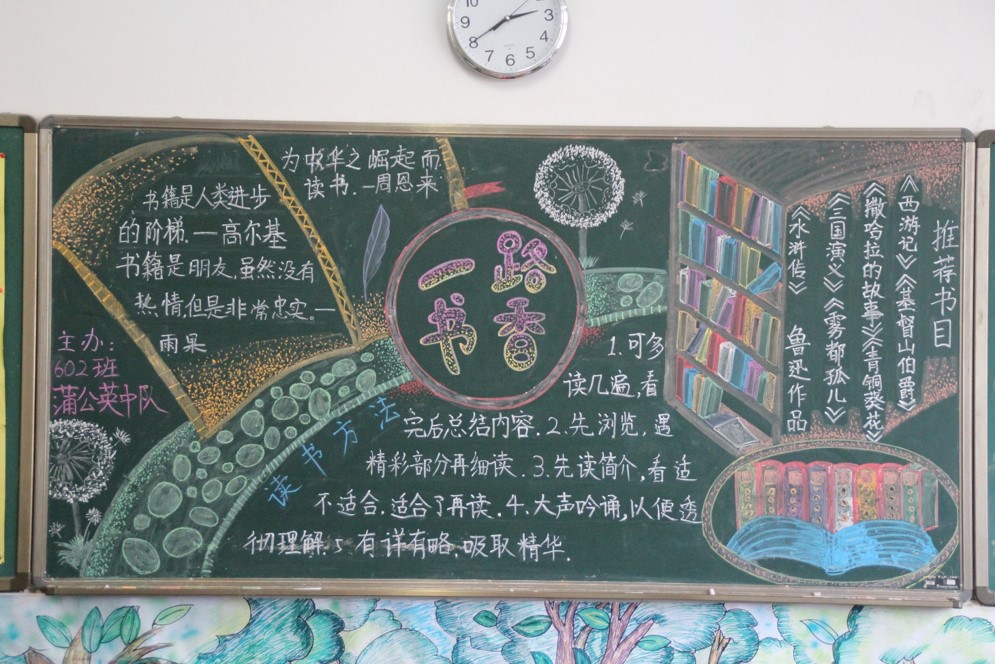 10
9
8
7
6
5
4
3
为中华之崛起而
读书.一周恩来
书籍是人类进步
的阶梯.一高尔基
书籍是朋友,虽然没有
热情,但是非常忠实.一
雨果
主办:
602班
蒲公英中队
一路
书香
读书方法
1.可多
读几遍,看
完后总结内容.2.先浏览,遇
精彩部分再细读.3.先读简介,看适
不适合.适合了再读.4.大声吟诵,以便透
彻理解.5.有详有略.吸取精华.
推荐书目
《西游记》《基督山伯爵》
《撒哈拉的故事》《青铜葵花》
《三国演义》《雾都孤儿》
《水浒传》 鲁迅作品